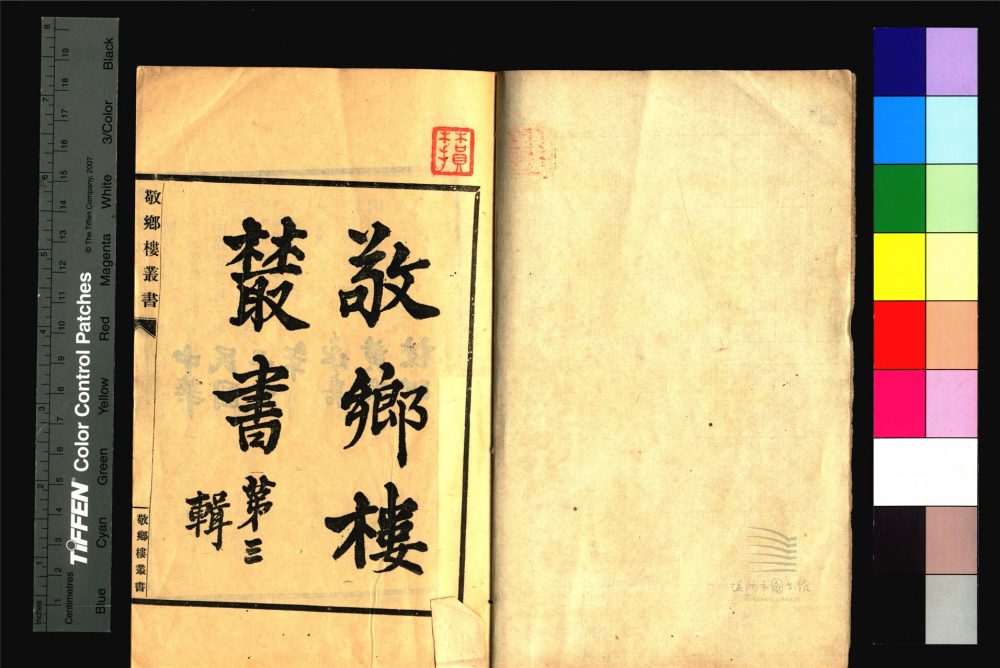 敬鄉樓
叢書
第三
輯
敬鄉樓叢書
敬鄉樓叢書
Inches
Centimetres
TIFFEN Color Control Patches
© The Tiffen Company, 2007
Blue Cyan Green Yellow Red Magenta White 3/Color Black
1 2 3 4 5 6 7 8
1 2 3 4 5 6 7 8 9 10 11 12 13 14 15 16 17 18 19
溫州市圖書館
WENZHOU LIBRARY